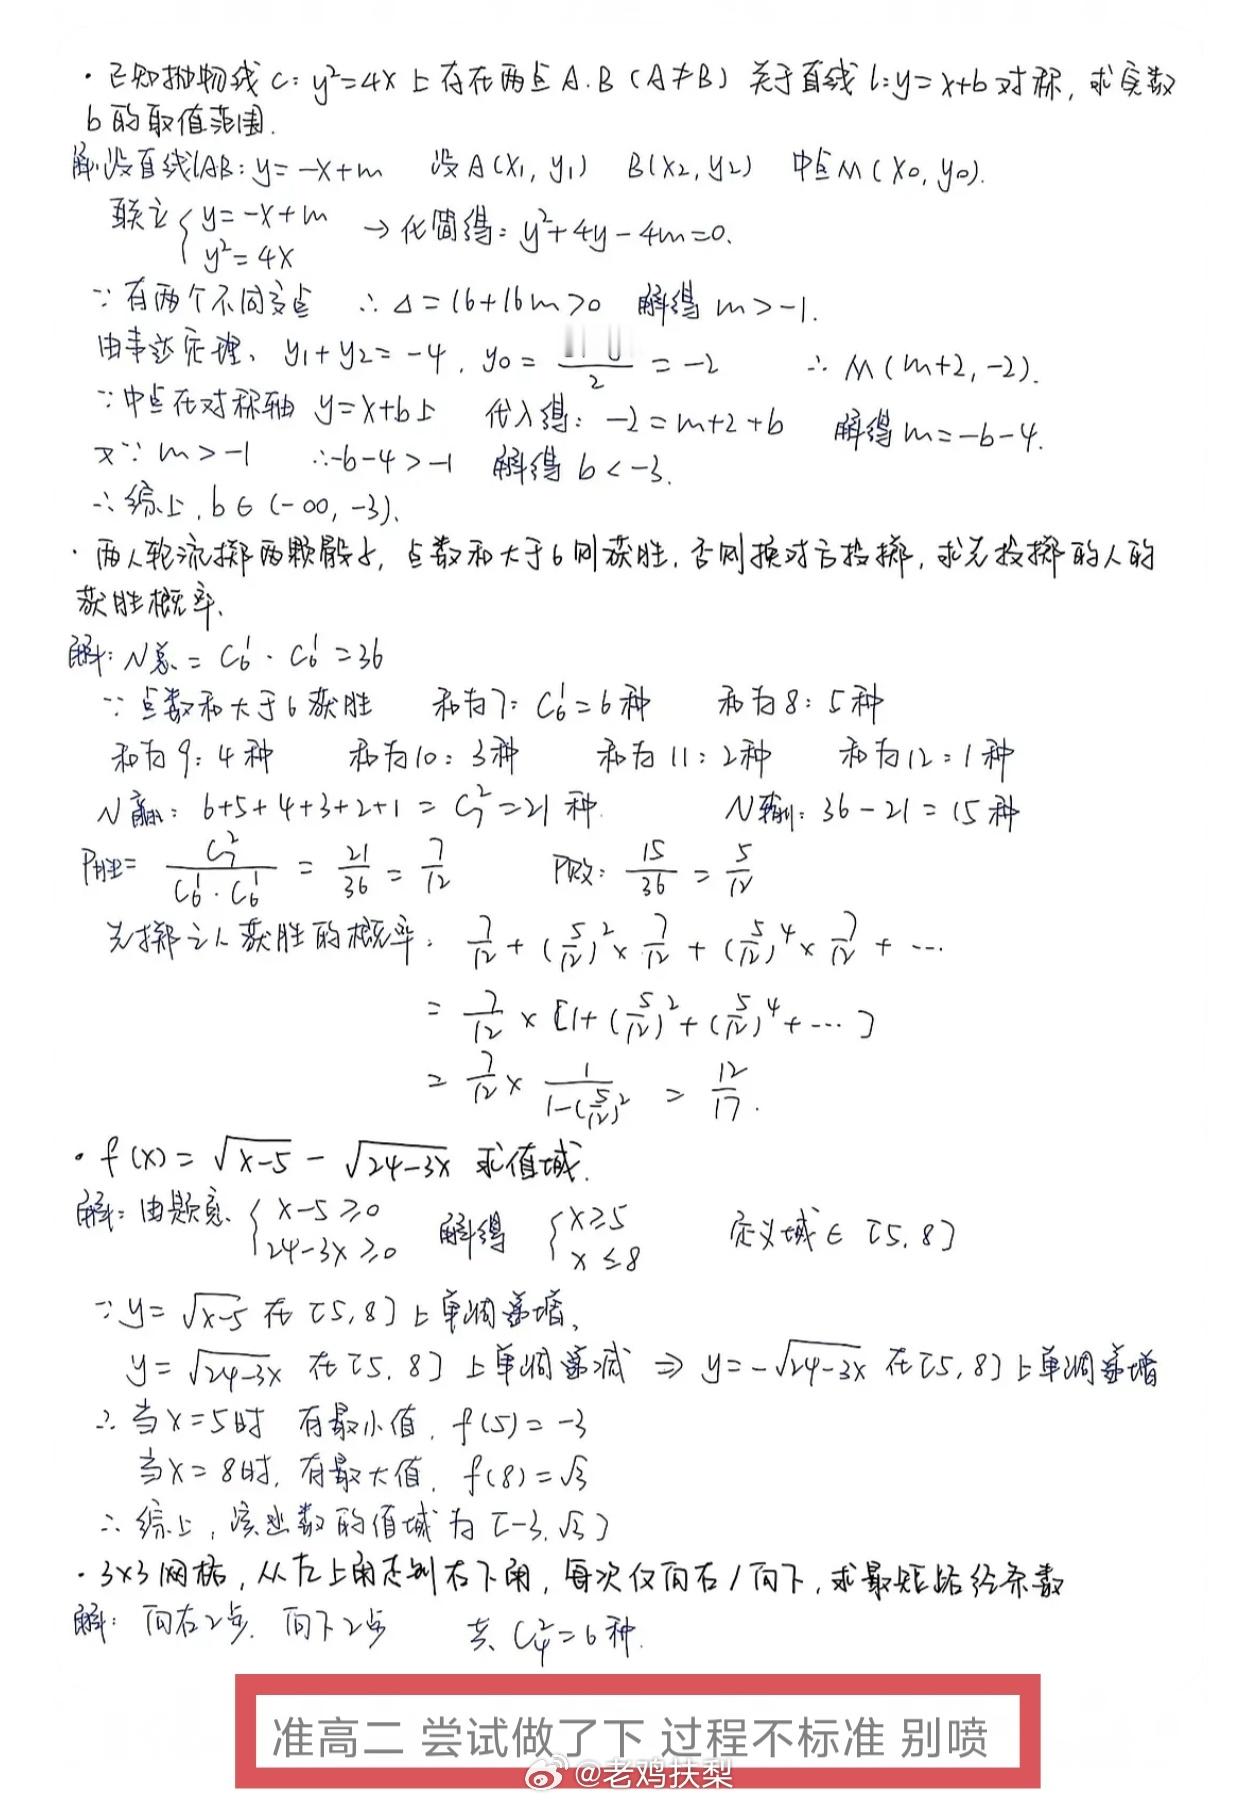 · 已知抛物线 C: y²=4x 上存在两点 A.B (A≠B) 关于直线 l: y=x+b 对称, 求实数
b 的取值范围.
解: 设直线lAB: y=-x+m 设A(x₁, y₁) B(x₂, y₂) 中点M(x₀, y₀).
联立 { y=-x+m y²=4x → 化简得: y²+4y-4m=0.
∵ 有两个不同交点 ∴ Δ=16+16m>0 解得 m>-1.
由韦达定理、 y₁+y₂=-4, y₀= /2 = -2 ∴ M(m+2, -2).
∵中点在对称轴 y=x+b上 代入得: -2=m+2+b 解得 m=-b-4.
又∵ m>-1 ∴-b-4>-1 解得 b<-3.
∴综上, b∈(-∞, -3).
· 两人轮流掷两颗骰子, 点数和大于6则获胜, 否则换对方投掷, 求先投掷的人的
获胜概率.
解: N总 = C₆¹·C₆¹=36
∵ 点数和大于6获胜 和为7: C₆¹=6种 和为8: 5种
和为9: 4种 和为10: 3种 和为11: 2种 和为12: 1种
N赢: 6+5+4+3+2+1 = C₇²=21种. N输: 36-21=15种
P胜= C₇²/(C₆¹·C₆¹) = 21/36 = 7/12 P败: 15/36 = 5/12
先掷之人获胜的概率: 7/12+(5/12)²×7/12+(5/12)⁴×7/12+…
= 7/12×[1+(5/12)²+(5/12)⁴+…]
= 7/12×1/(1-(5/12)²) = 12/17.
· f(x)=√(x-5) - √(24-3x) 求值域.
解: 由题意、 { x-5≥0 24-3x≥0 解得 { x≥5 x≤8 定义域∈[5,8]
∵y=√(x-5) 在[5,8]上单调递增,
y=√(24-3x) 在[5,8]上单调递减 ⇒ y=-√(24-3x) 在[5,8]上单调递增
∴ 当x=5时 有最小值, f(5)=-3
当x=8时, 有最大值, f(8)=√3
∴ 综上, 该函数的值域为[-3,√3]
· 3×3网格, 从左上角走到右下角, 每次仅向右/向下, 求最短路径条数
解: 向右2步, 向下2步 共、C₄²=6种.
准高二 尝试做了下 过程不标准 别喷
@老鸡扶梨